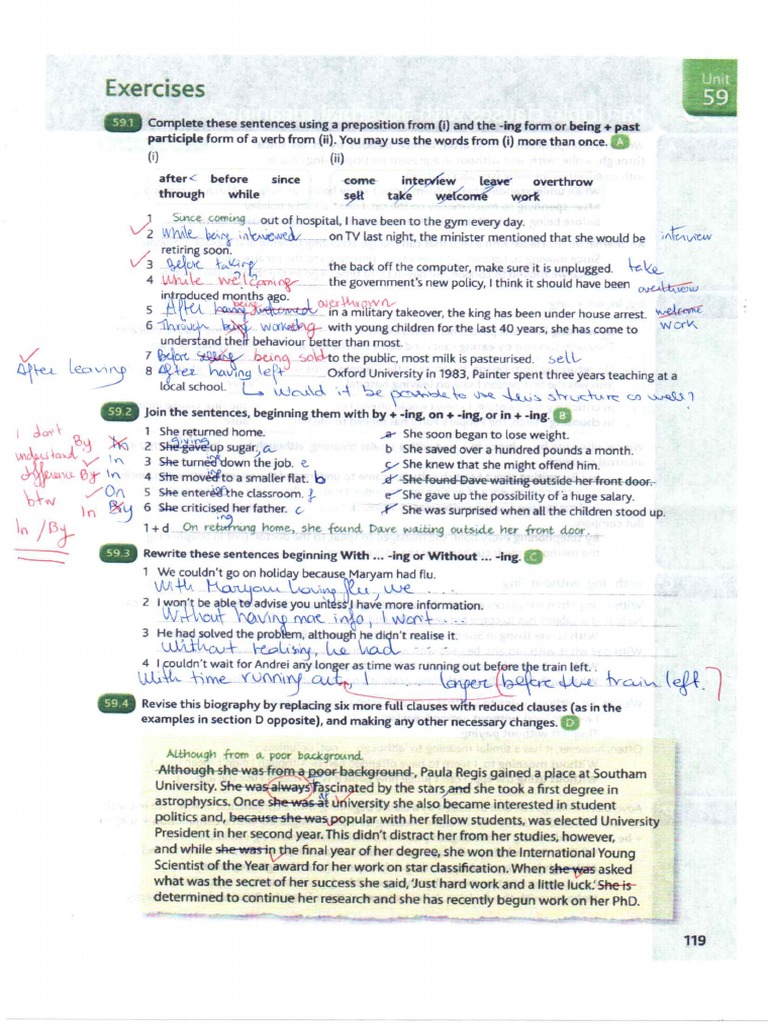 Exercises
Unit
59
59.1 Complete these sentences using a preposition from (i) and the -ing form or being + past
participle form of a verb from (ii). You may use the words from (i) more than once. A
(i) (ii)
after before since come interview leave overthrow
through while sell take welcome work
1 Since coming out of hospital, I have been to the gym every day.
2 While being interviewed on TV last night, the minister mentioned that she would be interview
retiring soon.
3 Before taking the back off the computer, make sure it is unplugged. take
4 While welcoming the government's new policy, I think it should have been overthrew
introduced months ago.
overthrown
being
5 After having in a military takeover, the king has been under house arrest. welcome
6 Through being working with young children for the last 40 years, she has come to work
understand their behaviour better than most.
7 Before selling being sold to the public, most milk is pasteurised. sell
After leaving 8 After having left Oxford University in 1983, Painter spent three years teaching at a
local school. ↳ Would it be possible to use this structure as well?
59.2 Join the sentences, beginning them with by + -ing, on + -ing, or in + -ing. B
i don't understand difference btw In / By
1 She returned home. a She soon began to lose weight.
By In 2 She gave giving up sugar, a b She saved over a hundred pounds a month.
In 3 She turned ing down the job. e c She knew that she might offend him.
By In 4 She moved ing to a smaller flat. b d She found Dave waiting outside her front door.
On 5 She entered ing the classroom. f e She gave up the possibility of a huge salary.
In By 6 She criticised ing her father. c f She was surprised when all the children stood up.
1 + d On returning home, she found Dave waiting outside her front door.
59.3 Rewrite these sentences beginning With ... -ing or Without ... -ing. C
1 We couldn't go on holiday because Maryam had flu.
With Maryam having flu, we ....
2 I won't be able to advise you unless I have more information.
Without having more info, I won't ....
3 He had solved the problem, although he didn't realise it.
Without realising, he had ....
4 I couldn't wait for Andrei any longer as time was running out before the train left. .
With time running out, I ...... longer (before the train left.)
59.4 Revise this biography by replacing six more full clauses with reduced clauses (as in the
examples in section D opposite), and making any other necessary changes. D
Although from a poor background
Although she was from a poor background, Paula Regis gained a place at Southam
University. She was always fascinated by the stars and she took a first degree in
astrophysics. Once she was at at university she also became interested in student
politics and, because she was popular with her fellow students, was elected University
President in her second year. This didn't distract her from her studies, however,
and while she was in the final year of her degree, she won the International Young
Scientist of the Year award for her work on star classification. When she was asked
what was the secret of her success she said, 'Just hard work and a little luck.' She is
determined to continue her research and she has recently begun work on her PhD.
119